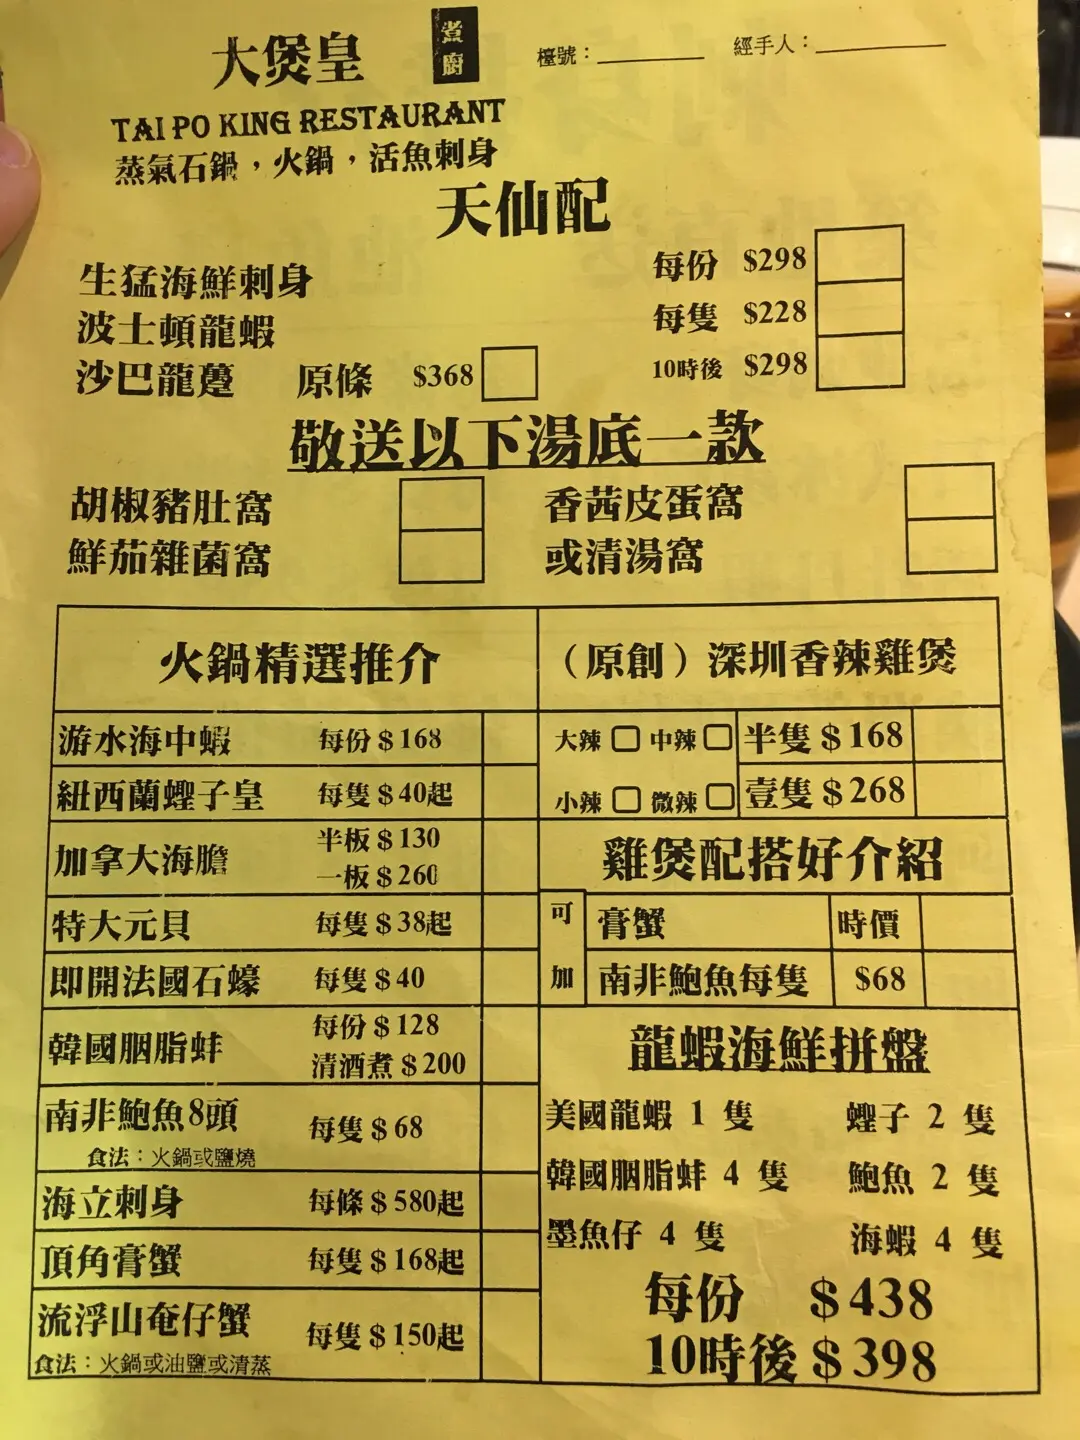 大煲皇
煮廚
檯號：
經手人：
TAI PO KING RESTAURANT
蒸氣石鍋，火鍋，活魚刺身
天仙配
生猛海鮮刺身 每份 $298
波士頓龍蝦 每隻 $228
沙巴龍躉 原條 $368 10時後 $298
敬送以下湯底一款
胡椒豬肚窩 香茜皮蛋窩
鮮茄雜菌窩 或清湯窩
火鍋精選推介
游水海中蝦 每份 $168
紐西蘭蟶子皇 每隻 $40起
加拿大海膽 半板 $130
一板 $260
特大元貝 每隻 $38起
即開法國石蠔 每隻 $40
韓國胭脂蚌 每份 $128
清酒煮 $200
南非鮑魚8頭 每隻 $68
食法：火鍋或鹽燒
海立刺身 每條 $580起
頂角膏蟹 每隻 $168起
流浮山奄仔蟹 每隻 $150起
食法：火鍋或油鹽或清蒸
（原創）深圳香辣雞煲
大辣 中辣 半隻 $168
小辣 微辣 壹隻 $268
雞煲配搭好介紹
可加
膏蟹 時價
南非鮑魚每隻 $68
龍蝦海鮮拼盤
美國龍蝦 1 隻 蟶子 2 隻
韓國胭脂蚌 4 隻 鮑魚 2 隻
墨魚仔 4 隻 海蝦 4 隻
每份 $438
10時後 $398